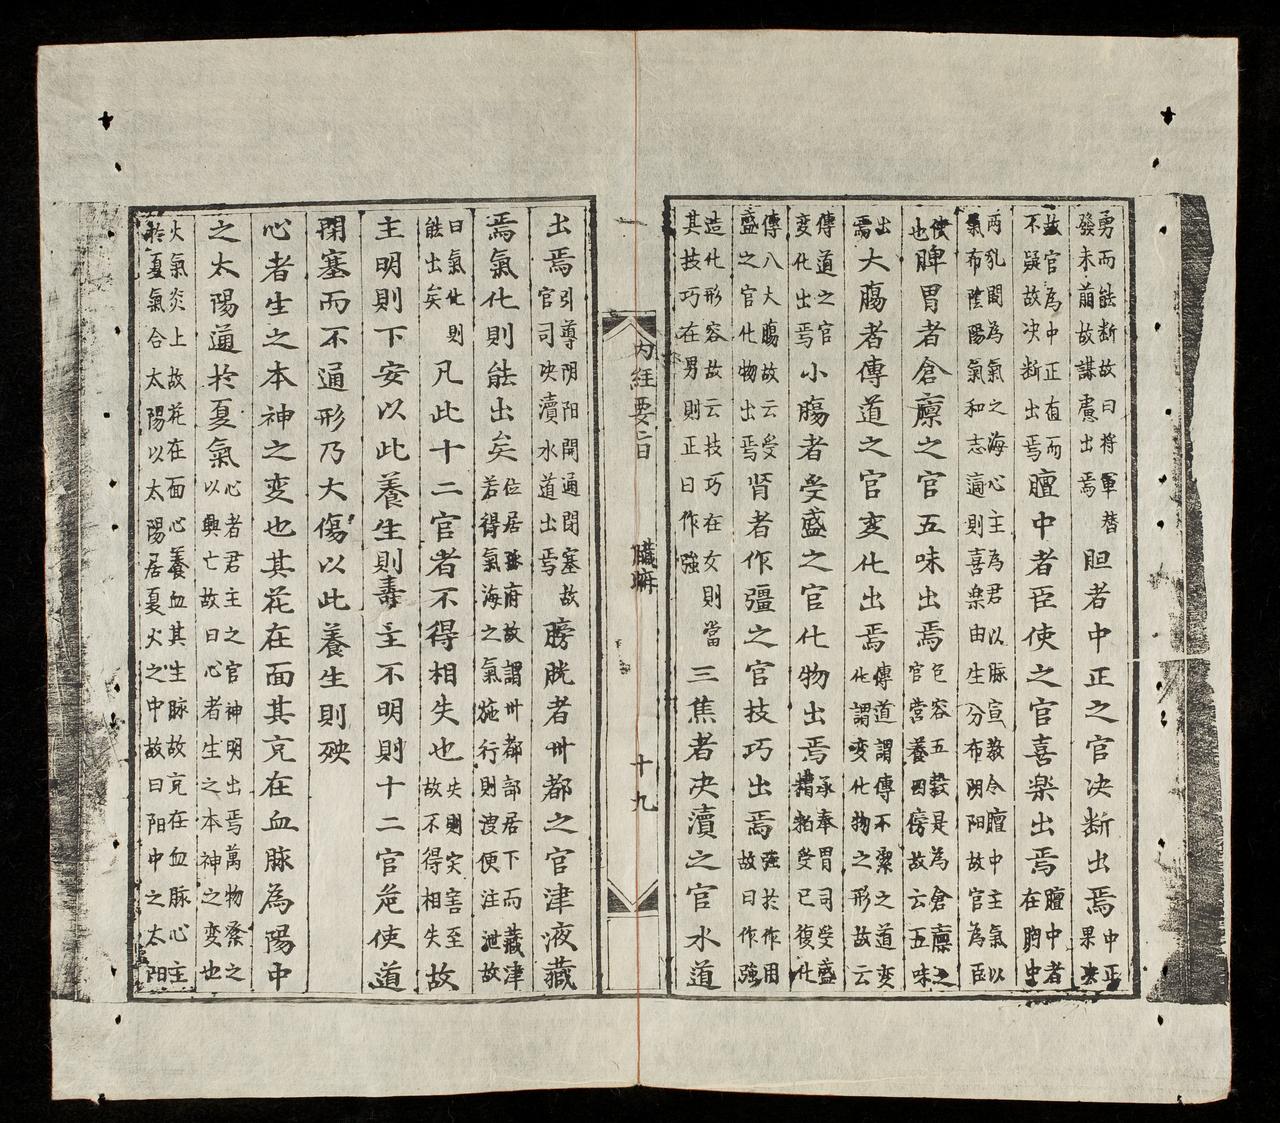 勇而能断故曰将軍替發未萠故謀慮出焉胆者中正之官决断出焉中正果决
故官為中正直而不疑故决断出焉膻中者臣使之官喜楽出焉膻中者在胸中
两乳間為氣之海心主為君以脉宣教令膻中主氣以氣布陰陽氣和志適則喜楽由生分布阴阳故官為臣
使也脾胃者倉廪之官五味出焉包容五穀是為倉廪之官营養四傍故云五味
出焉大膓者傳道之官变化出焉傳道謂傳不潔之道变化謂变化物之形故云
傳道之官变化出焉小膓者受盛之官化物出焉承奉胃司受盛糟粕受已復化
傳入大膓故云受盛之官化物出焉肾者作彊之官技巧出焉强於作用故曰作强
造化形容故云技巧在女則當其技巧在男則正曰作强三焦者决瀆之官水道
内経要旨 臓腑 十九
出焉引導阴阳開通閉塞故官司决瀆水道出焉膀胱者州都之官津液藏
焉氣化則能出矣位居府故謂州都部居下而藏津若得氣海之氣施行則溲便注泄故
曰氣化則能出矣凡此十二官者不得相失也失則灾害至故不得相失故
主明則下安以此養生則壽主不明則十二官危使道
閉塞而不通形乃大傷以此養生則殃
心者生之本神之变也其花在面其充在血脉為陽中
之太陽通於夏氣心者君主之官神明出焉萬物系之以興亡故曰心者生之本神之变也
火氣炎上故花在面心養血其主脉故充在血脉心主於夏氣合太陽以太陽居夏火之中故曰阳中之太阳